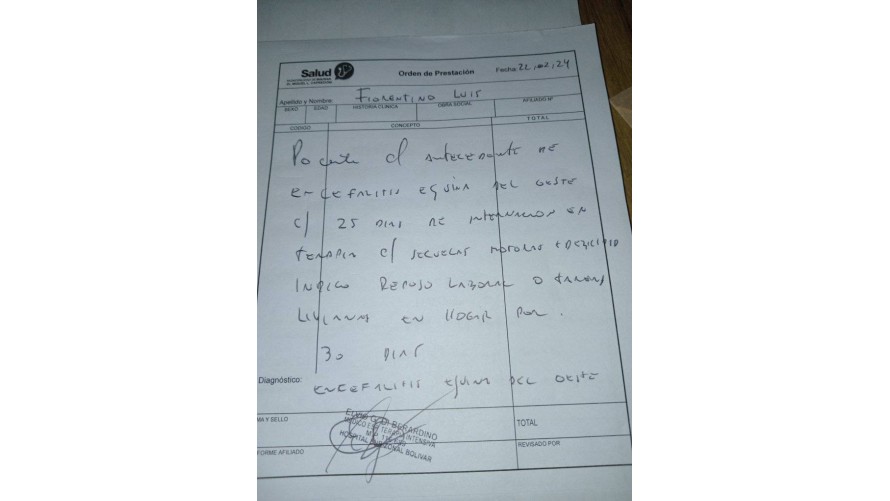 Salud
Orden de Prestación
Fecha: 22,02,24
Apellido y Nombre: FIORENTINO LUIS
SEXO EDAD HISTORIA CLINICA OBRA SOCIAL AFILIADO Nº
CODIGO CONCEPTO TOTAL
c/ ANTECEDENTE DE
ENCEFALITIS EQUINA DEL OESTE
c/ 25 DIAS DE INTERNACION EN
TERAPIA c/ SECUELAS MOTORAS
INDICO REPOSO LABORAL O TAREAS
LIVIANAS EN HOGAR POR.
30 DIAS
Diagnóstico: ENCEFALITIS EQUINA DEL OESTE
MA Y SELLO
DI BERARDINO
MEDICO ESP TERAPIA INTENSIVA
HOSPITAL MUNICIPAL BOLIVAR
TOTAL
REVISADO POR
FORME AFILIADO